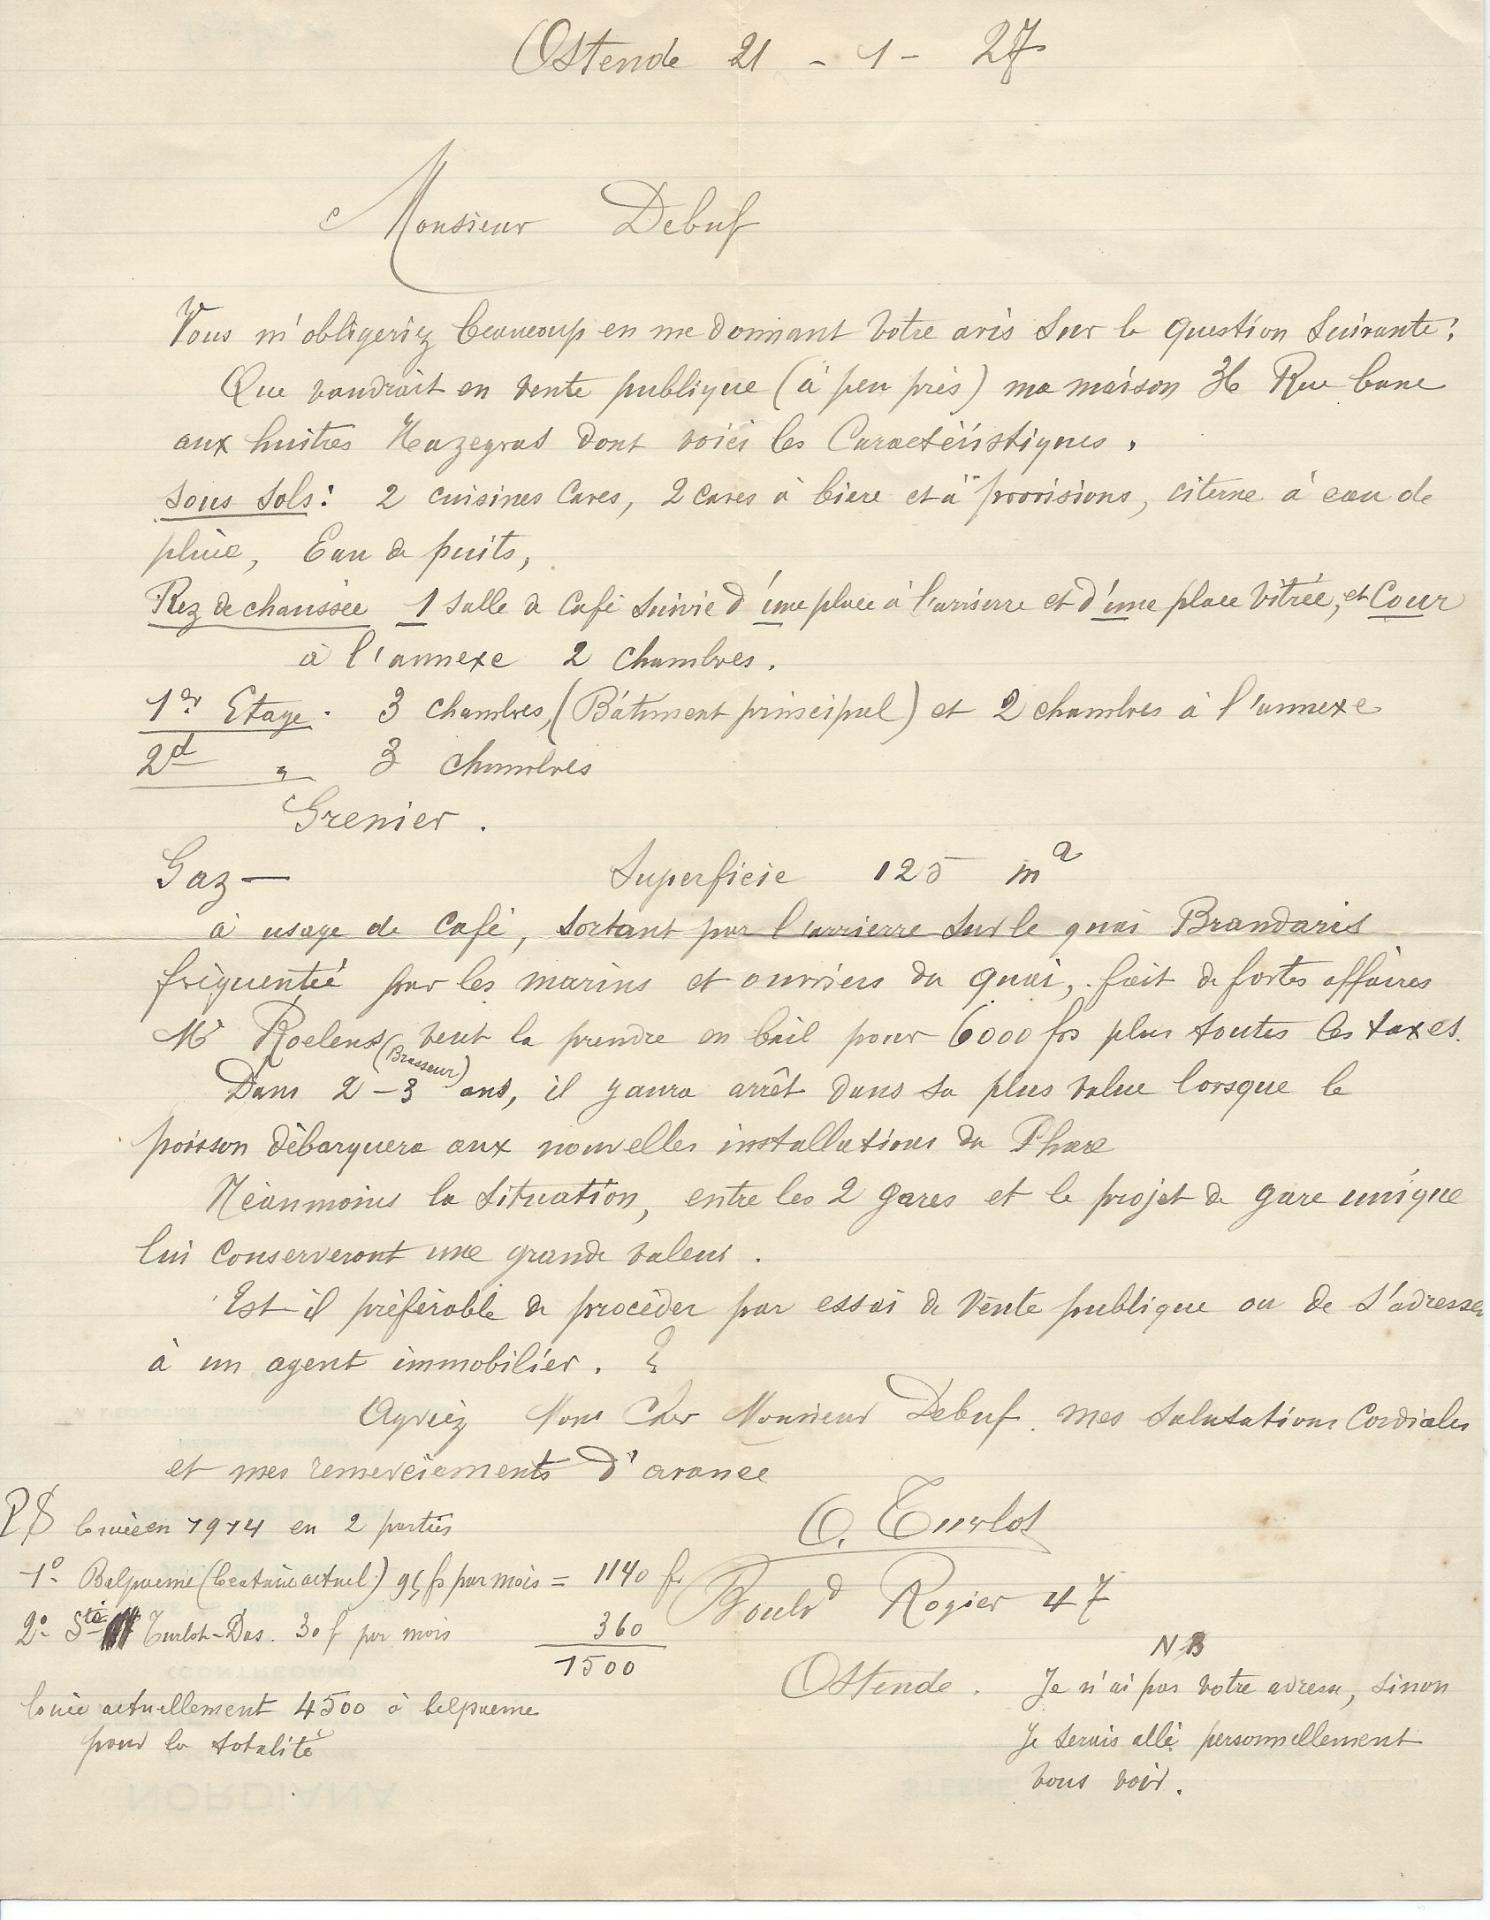 Ostende 21 - 1 - 27
Monsieur Debuf
Vous m'obligeriez beaucoup en me donnant votre avis sur la question suivante:
Que vaudrait en vente publique (à peu près) ma maison 36 Rue banc
aux huitres Hazegras dont voici les Caractéristiques.
Sous sols: 2 cuisines caves, 2 caves à bière et à provisions, citerne à eau de
pluie, Eau de puits,
Rez de chaussée 1 salle de café suivie d'une place à l'arrierre et d'une place vitrée, et Cour
à l'annexe 2 chambres.
1er Etage. 3 chambres, (Bâtiment principal) et 2 chambres à l'annexe
2d " 3 chambres
Grenier.
Gaz — Superficie 125 m2
à usage de café, sortant par l'arrierre sur le quai Brandaris
fréquenté par les marins et ouvriers du quai, fait de fortes affaires
Mr Roelens (Brasseur) veut la prendre en bail pour 6000 frs plus toutes les taxes.
Dans 2-3 ans, il y aura arrêt dans sa plus value lorsque le
poisson débarquera aux nouvelles installations du Phare
Néanmoins la situation, entre les 2 gares et le projet de gare unique
lui conserveront une grande valeur.
Est-il préférable de procéder par essai de vente publique ou de s'adresser
à un agent immobilier. ?
Agréez Mon Cher Monsieur Debuf. mes salutations Cordiales
et mes remerciements d'avance
C. Turlot
Boulvd Rogier 47
Ostende.
PS louée en 1914 en 2 parties
1° Balpaeme (locataire actuel) 95 fs par mois = 1140 fr
2° Sté Turlot-Das. 30 f par mois 360
1500
louée actuellement 4500 à belpaeme
pour la totalité
NB
Je n'ai pas votre adresse, sinon
Je serais allé personnellement
vous voir.
NORDIANA